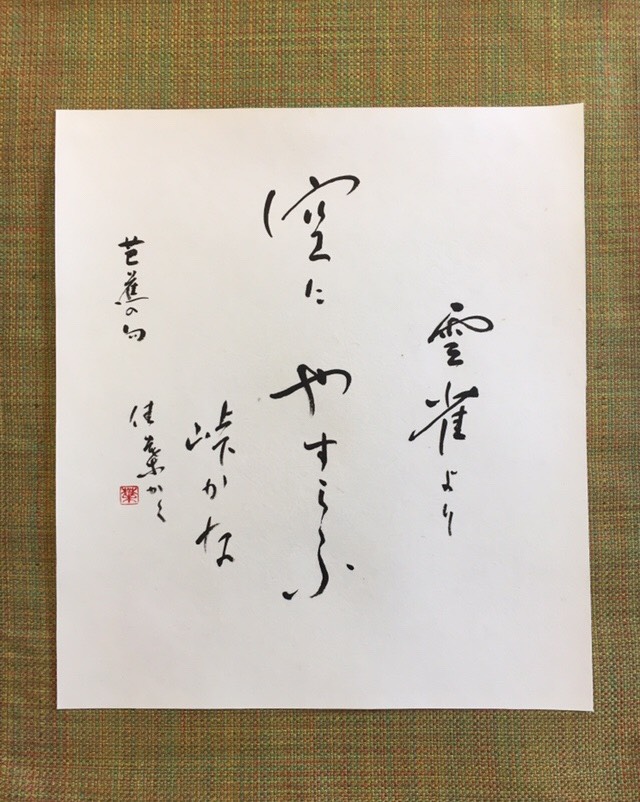 雲雀より
空に
やすらふ
峠かな
芭蕉の句
佳葉かく